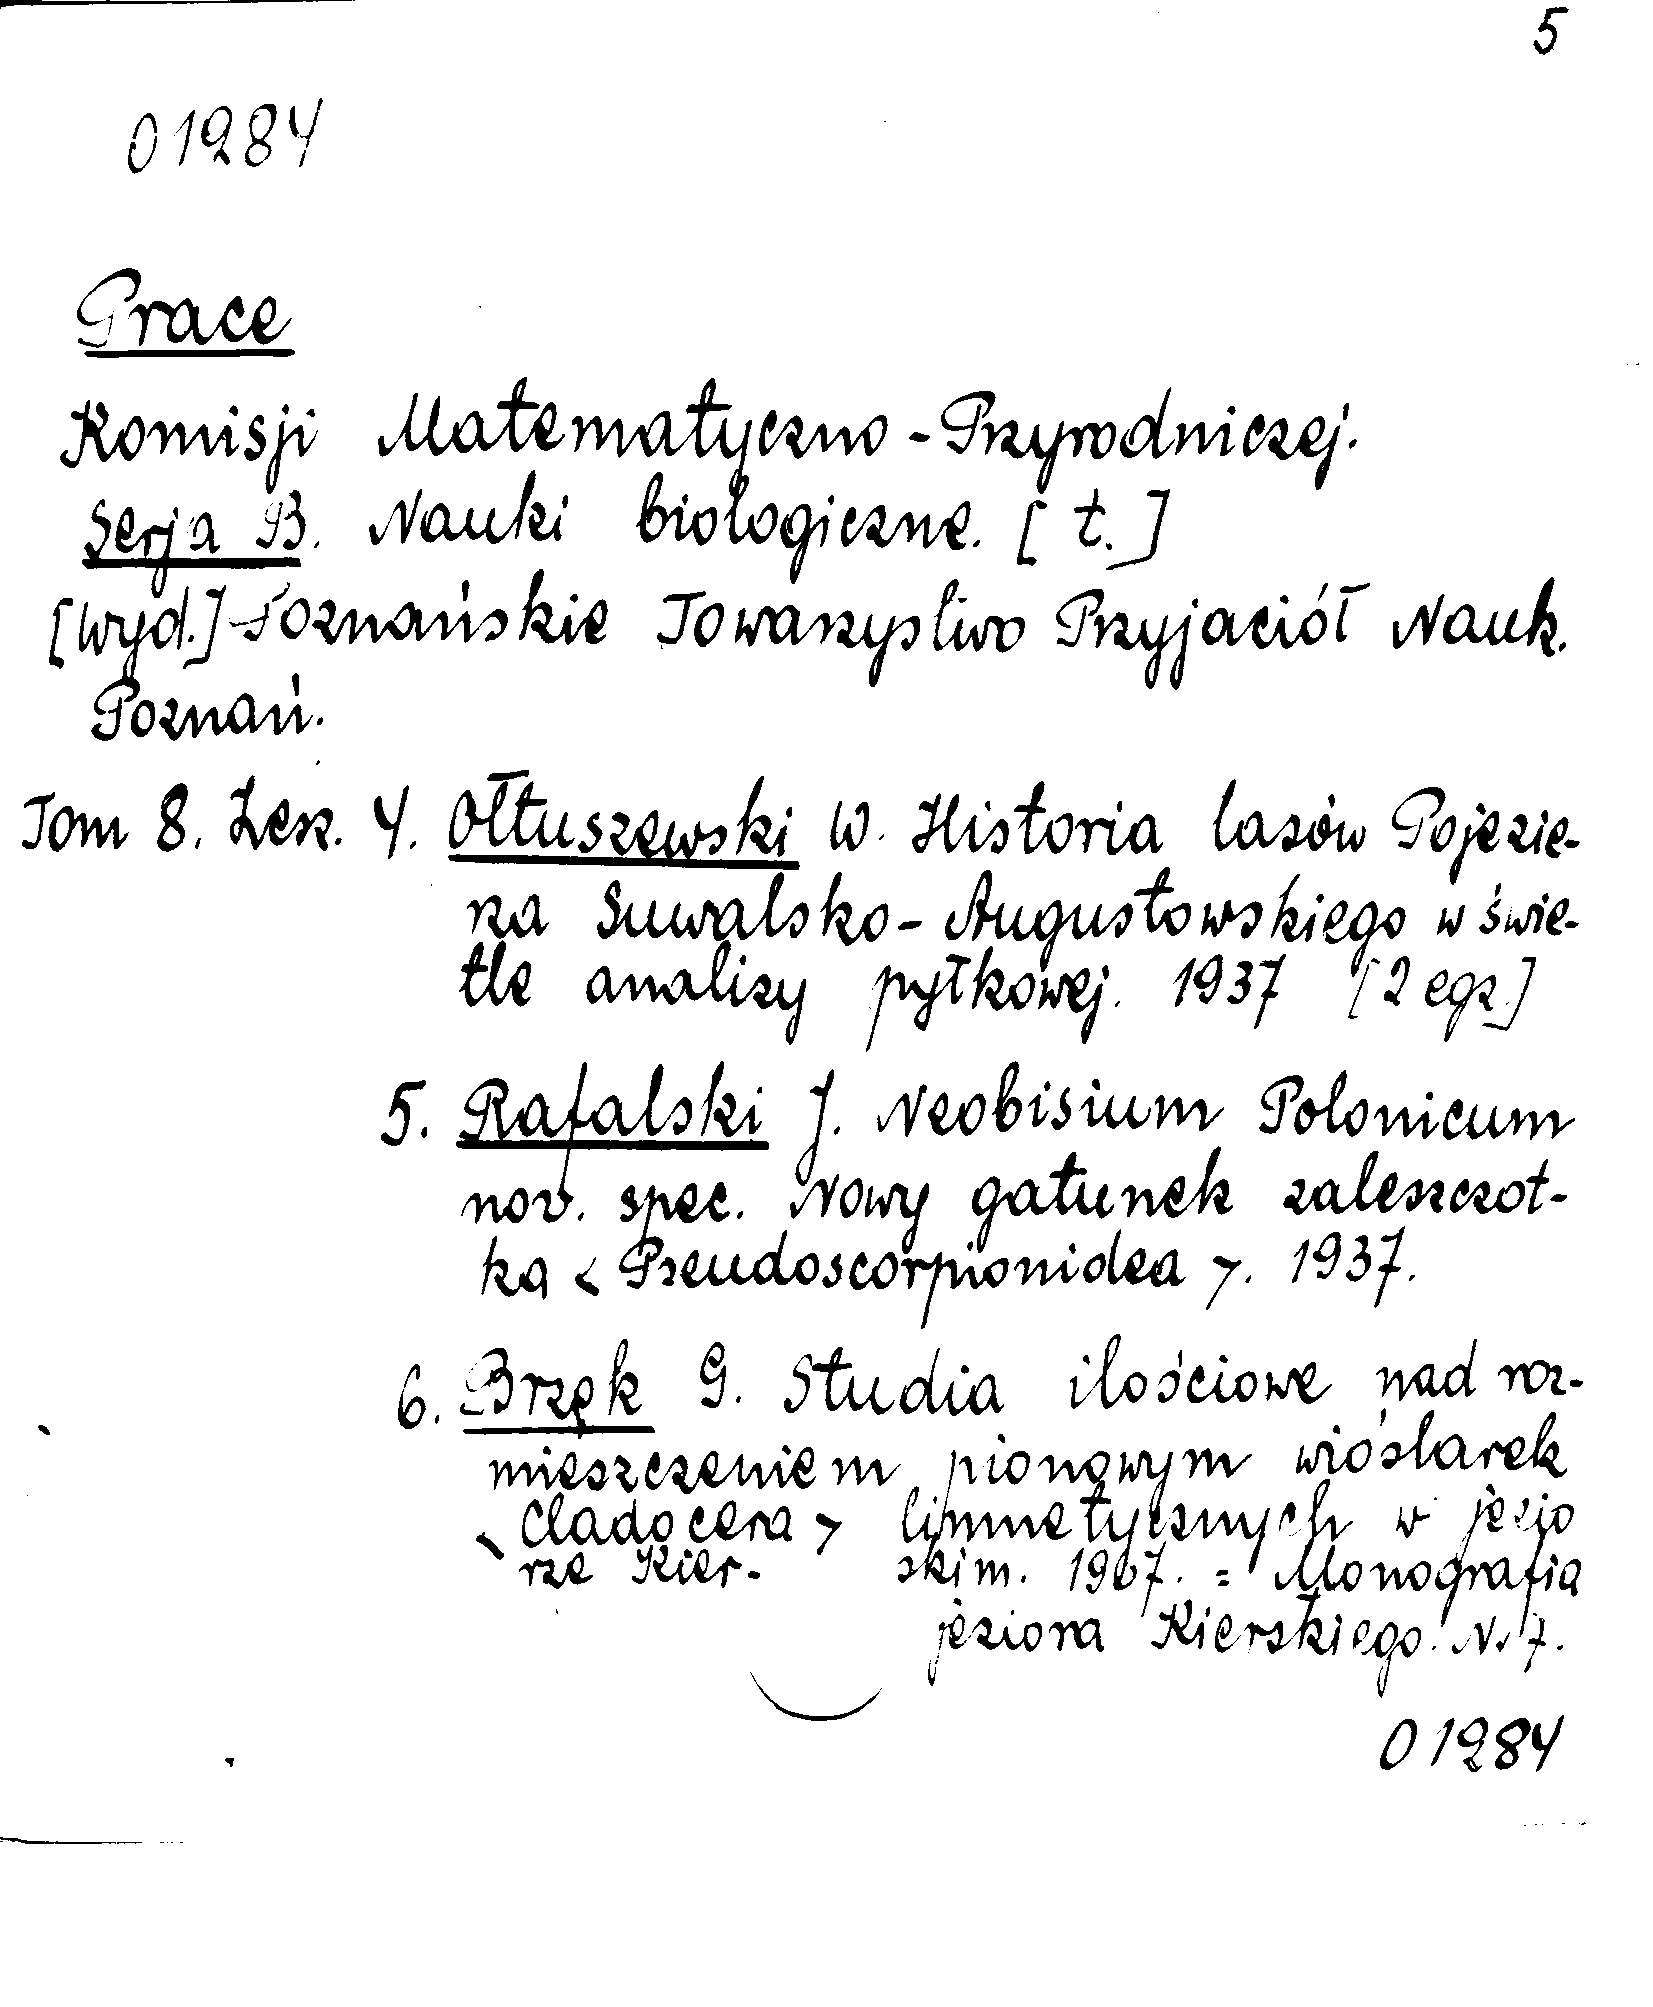 5
01284
Prace
Komisji Matematyczno-Przyrodniczej.
Serja B. Nauki biologiczne. [t.]
[wyd.] Poznańskie Towarzystwo Przyjaciół Nauk.
Poznań.
Tom 8. Zesz. 4. Ołtuszewski W. Historia lasów Pojezie-
rza Suwalsko-Augustowskiego w świe-
tle analizy pyłkowej. 1937 [2 egz.]
5. Rafalski J. Neobisium Polonicum
nov. spec. Nowy gatunek zaleszczot-
ka <Pseudoscorpionidea>. 1937.
6. Brzęk G. Studia ilościowe nad roz-
mieszczeniem pionowym wioślarek
<Cladocera> limnetycznych w jezio
rze Kier- skim. 1937. = Monografia
jeziora Kierskiego. N. 7.
01284